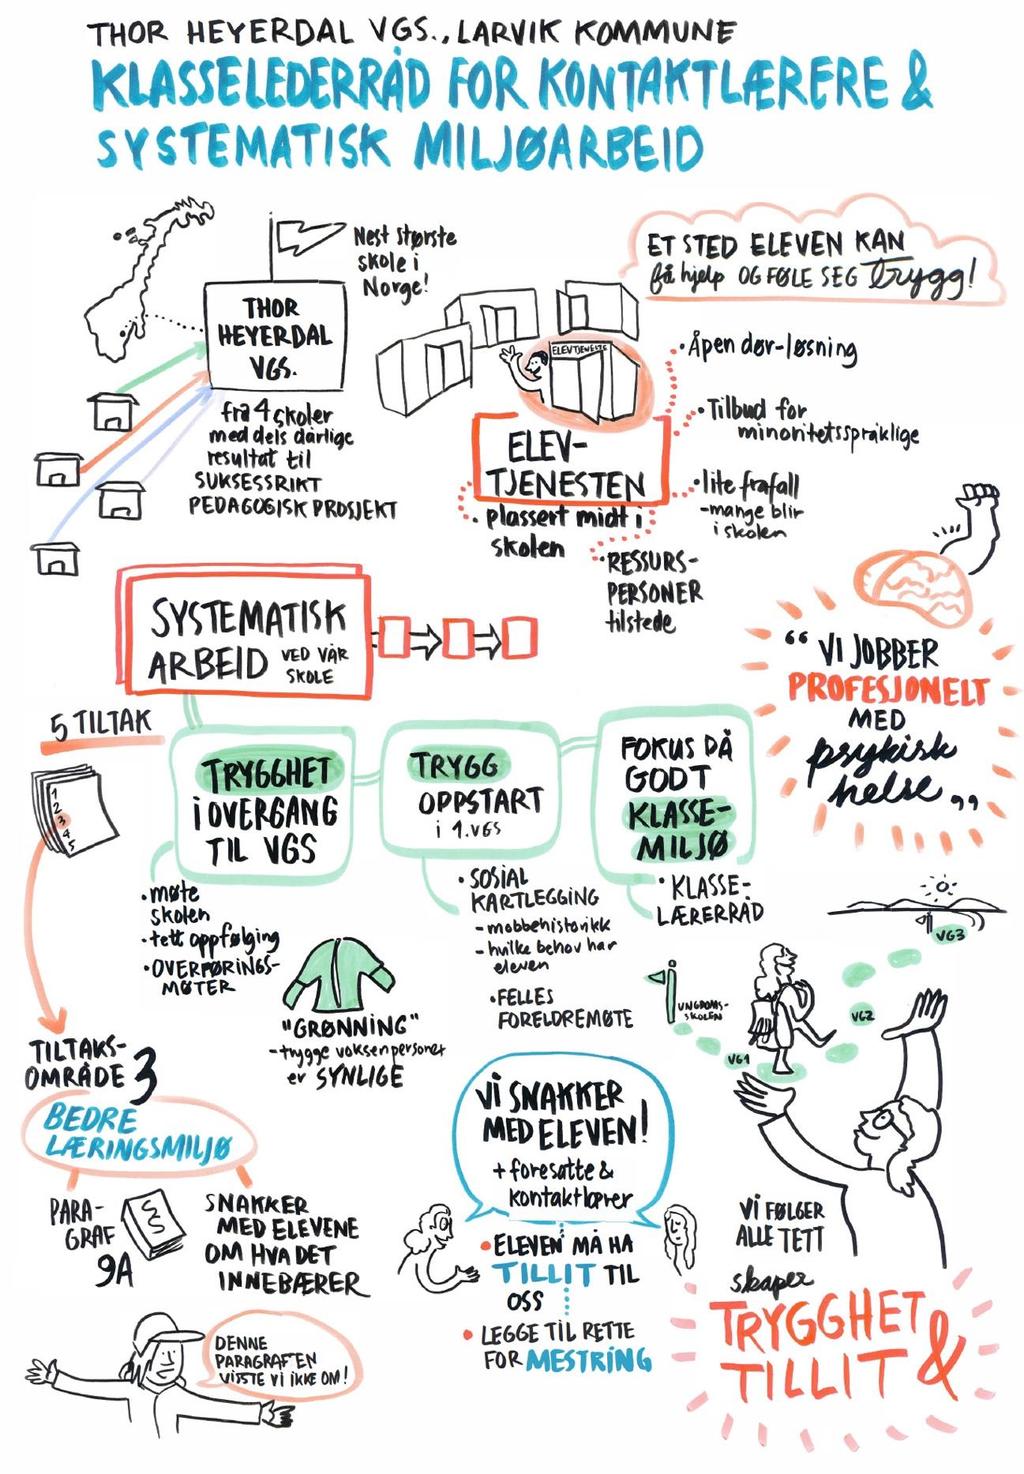 THOR HEYERDAL VGS., LARVIK KOMMUNE
KLASSELEDERRÅD FOR KONTAKTLÆRERE &
SYSTEMATISK MILJØARBEID
Nest største
skole i
Norge!
THOR
HEYERDAL
VGS.
fra 4 skoler
med dels dårlige
resultat til
SUKSESSRIKT
PEDAGOGISK PROSJEKT
ET STED ELEVEN KAN
få hjelp OG FØLE SEG trygg!
ELEVTJENESTE
ELEV-
TJENESTEN
• plassert midt i
skolen
• Åpen dør-løsning
• Tilbud for
minoritetsspråklige
• lite frafall
- mange blir
i skolen
• RESSURS-
PERSONER
tilstede
SYSTEMATISK
ARBEID VED VÅR
SKOLE
"VI JOBBER
PROFESJONELT
MED
psykisk
helse"
5 TILTAK
1
2
3
4
5
TRYGGHET
i OVERGANG
TIL VGS
• møte
skolen
• tett oppfølging
• OVERFØRINGS-
MØTER
TRYGG
OPPSTART
i 1.VGS
• SOSIAL
KARTLEGGING
- mobbehistorikk
- hvilke behov har
eleven
• FELLES
FORELDREMØTE
FOKUS PÅ
GODT
KLASSE-
MILJØ
• KLASSE-
LÆRERRÅD
"GRØNNING"
- trygge voksenpersoner
er SYNLIGE
UNGDOMS-
SKOLEN
VG1
VG2
VG3
TILTAKS-
OMRÅDE 3
BEDRE
LÆRINGSMILJØ
PARA-
GRAF
9A
SNAKKER
MED ELEVENE
OM HVA DET
INNEBÆRER
DENNE
PARAGRAFEN
VISSTE VI IKKE OM!
VI SNAKKER
MED ELEVEN!
+ foresatte &
kontaktlærer
• ELEVEN MÅ HA
TILLIT TIL
OSS
• LEGGE TIL RETTE
FOR MESTRING
VI FØLGER
ALLE TETT
skaper
TRYGGHET &
TILLIT